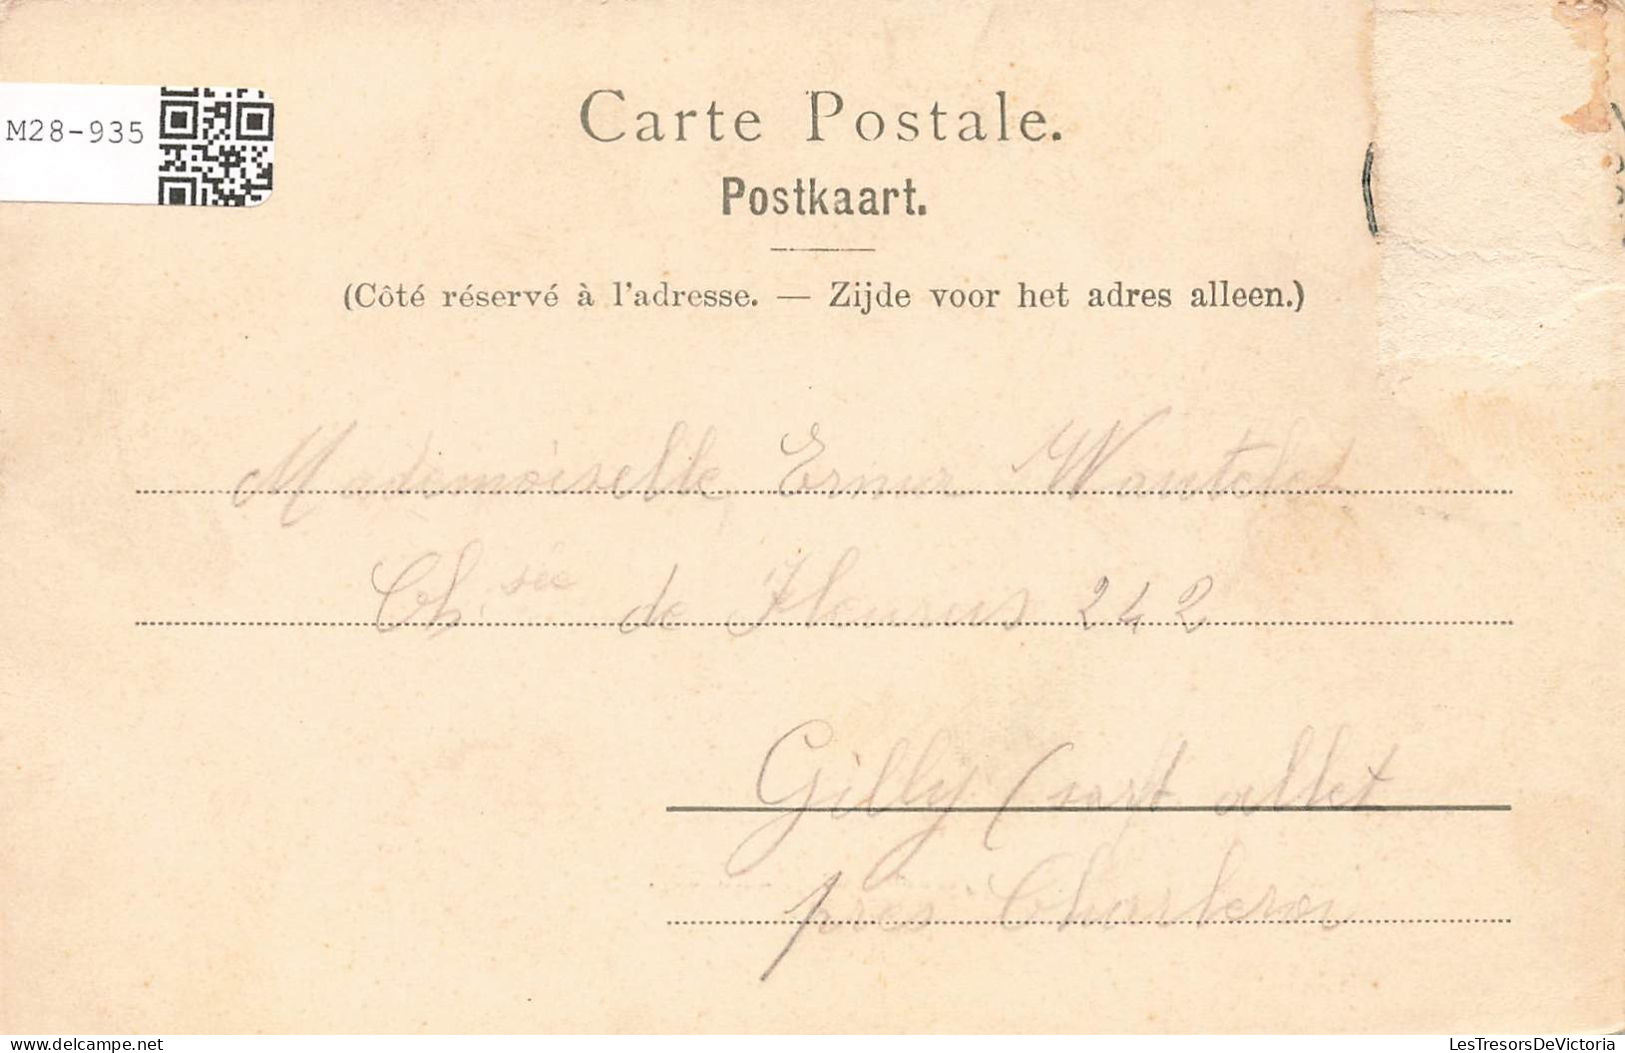 M28-935
Carte Postale.
Postkaart.
(Côté réservé à l'adresse. — Zijde voor het adres alleen.)
Mademoiselle
Ch.sée de Fleurus 242
Gilly (sart allet
près Charleroi
Delcampe.net
LesTresorsDeVictoria